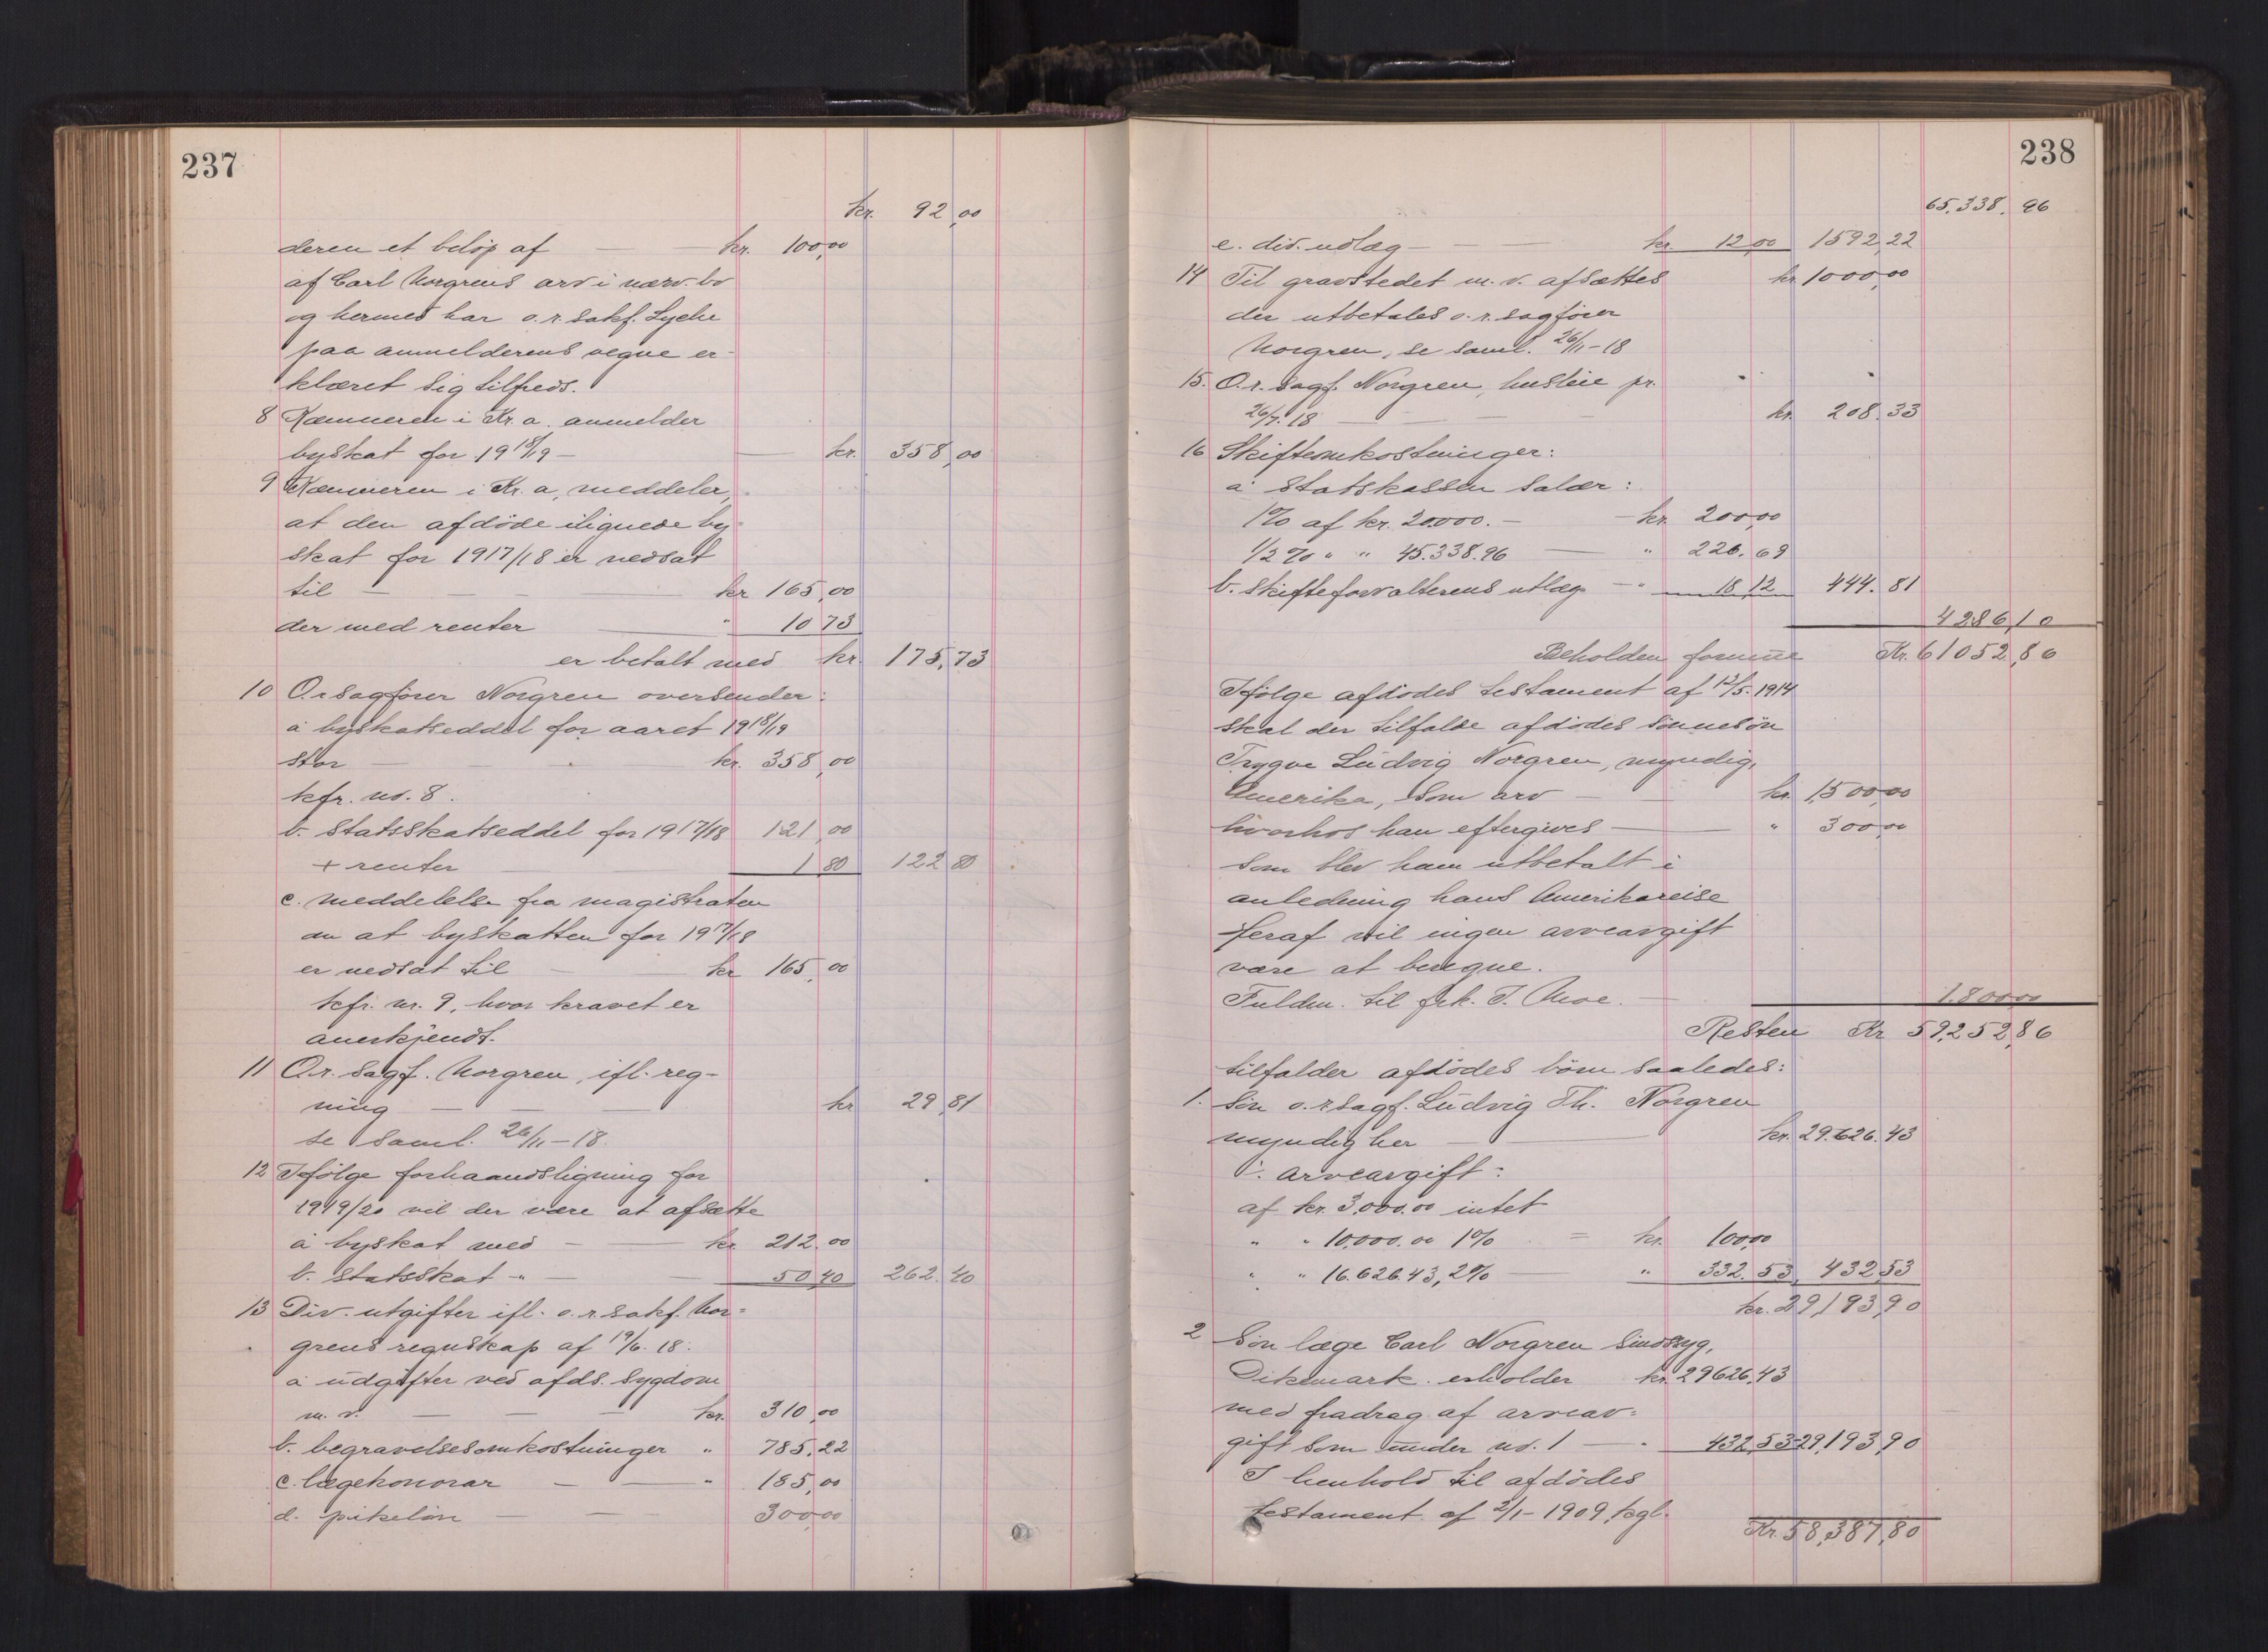 237
kr. 92,00
deren et beløp af — — kr. 100,00
af Carl Norgrens arv i nærv. bo
og hermed har o.r.sakf. Lyche
paa anmelderens vegne er-
klæret sig tilfreds.
8 Kæmneren i Kr.a. anmelder
byskat for 1918/19 — — kr. 358,00
9 Kæmneren i Kr.a, meddeler,
at den afdöde ilignede by-
skat for 1917/18 er nedsat
til — — — — kr 165,00
der med renter — " 10 73
er betalt med kr. 175,73
10 O.r.sagfører Norgren oversender:
a byskatseddel for aaret 1918/19
stor — — — kr. 358,00
kfr. no. 8.
b. Statsskatseddel for 1917/18 121,00
+ renter — 1 80 122 80
c. meddelelse fra magistraten
om at byskatten for 1917/18
er nedsat til — — kr 165,00
kfr. nr. 9, hvor kravet er
anerkjendt.
11 O.r. sagf. Norgren, ifl. reg-
ning — — — kr 29,81
se saml. 26/11-18.
12 Ifølge forhaandsligning for
1919/20 vil der være at afsætte
a byskat med — — kr. 212.00
b. statsskat " — — 50,40 262.40
13 Div. utgifter ifl. o.r.sakf. Nor=
grens regnskap af 19/6. 18:
a üdgifter ved afds. sygdom
m. v. — — — kr. 310,00
b. begravelsesomkostninger " 785,22
c. lægehonorar — — " 185,00
d. pikelön — — 300,00
238
65.338.96
e. div. udlæg — — — kr. 12,00 1592,22
14 Til gravstedet m. v. afsættes kr. 1000,00
der utbetales o.r.sagfører
Norgren, se saml. 26/11-18
15. O.r. sagf. Norgren, husleie pr.
26/7. 18 — — — — kr. 208.33
16 Skifteomkostninger:
a Statskassen salær:
1% af kr. 20.000. — — kr. 200,00
1/2 % " " 45.338.96 — " 226.69
b. Skifteforvalterens utlæg — " 18,12 444.81
4286,10
Beholden formue Kr. 61052,86
Ifölge afdödes testament af 12/5. 1914
skal der tilfalde afdödes sönnesön
Trygve Lüdvig Norgren, myndig,
Amerika, som arv — — kr. 1,500,00
hvorhos han eftergives — — " 300,00
som blev ham utbetalt i
anledning hans Amerikareise
heraf vil ingen arveavgift
være at beregne.
Fuldm. til frk. T. Moe. — 1.800,00
Resten Kr 59,252,86
tilfalder afdödes börn saaledes:
1. Sön o.r.sagf. Lüdvig Th. Norgren
myndig her — — kr. 29.626.43
÷ arveavgift:
af kr. 3.000.00 intet
" " 10.000.00 1% = kr. 100,00
" " 16.626.43, 2% — " 332.53, 432,53
kr. 29,193,90
2 Sön læge Carl Norgren sindssyg,
Dikemark. erholder kr. 29626,43
med fradrag af arveav=
gift som ünder no. 1 — " 432,53 29,193,90
I henhold til afdödes
testament af 2/1-1909, kgl.
Kr. 58,387,80